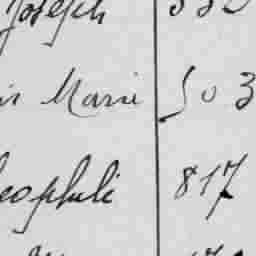 Joseph 332
is Marie 503
eophile 817